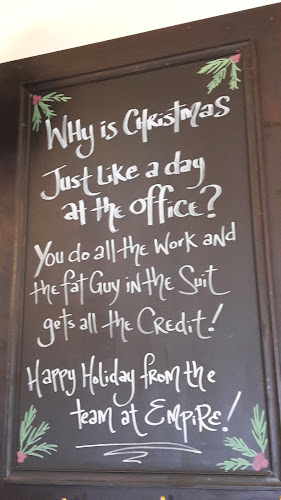 Why is Christmas
Just Like a day
at the office?
You do all the Work and
the fat Guy in the Suit
gets all the Credit!
Happy Holiday from the
team at EMPiRE!